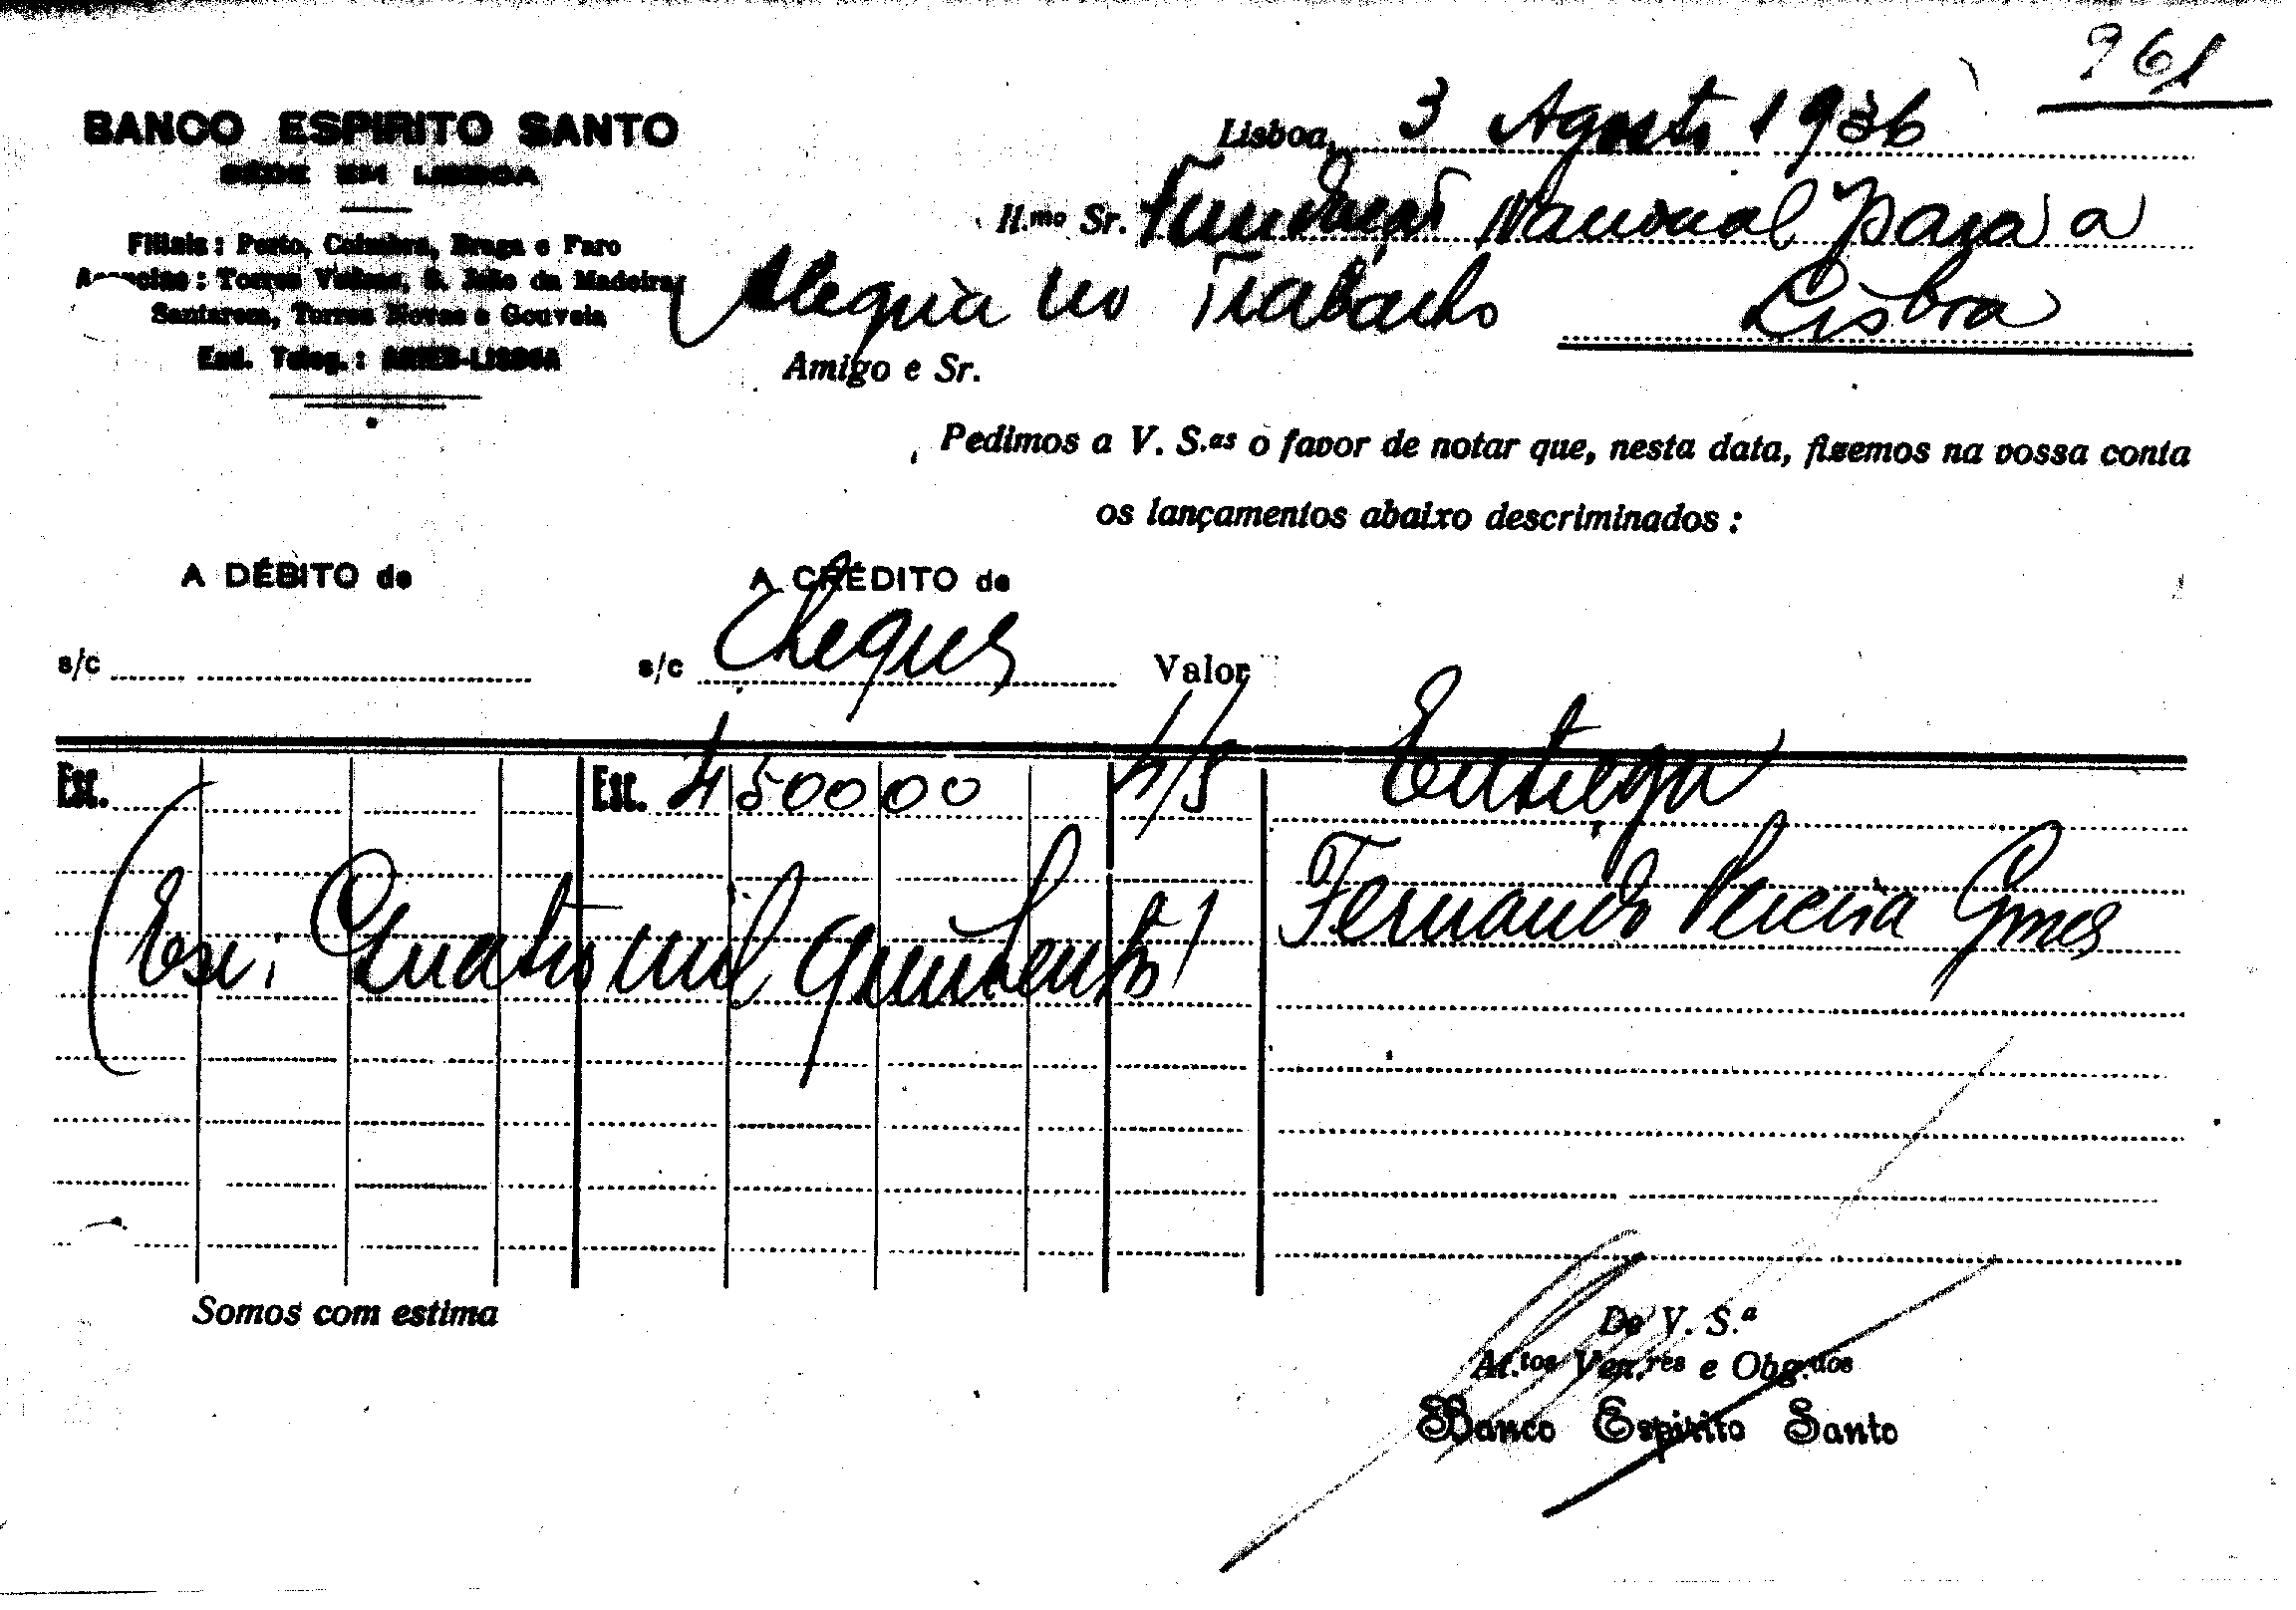 961
BANCO ESPIRITO SANTO
SÉDE EM LISBOA
Filiais : Porto, Coimbra, Braga e Faro
Agencias : Torres Vedras, S. João da Madeira,
Santarem, Torres Novas e Gouveia
End. Teleg. :
Lisboa, 3 Agosto 1936
Il.mo Sr. Fundação Nacional para a
Alegria no Trabalho Lisboa
Amigo e Sr.
Pedimos a V. S.as o favor de notar que, nesta data, fizemos na vossa conta
os lançamentos abaixo descriminados :
A DÉBITO de A CRÉDITO de
s/c s/c Cheques Valor
Esc. Esc. 4 500 00 Entrega
Esc. Quatro mil quinhentos Fernando Pereira Gomes
Somos com estima
De V. S.ª
At.tos Ven.res e Obg.dos
Banco Espirito Santo